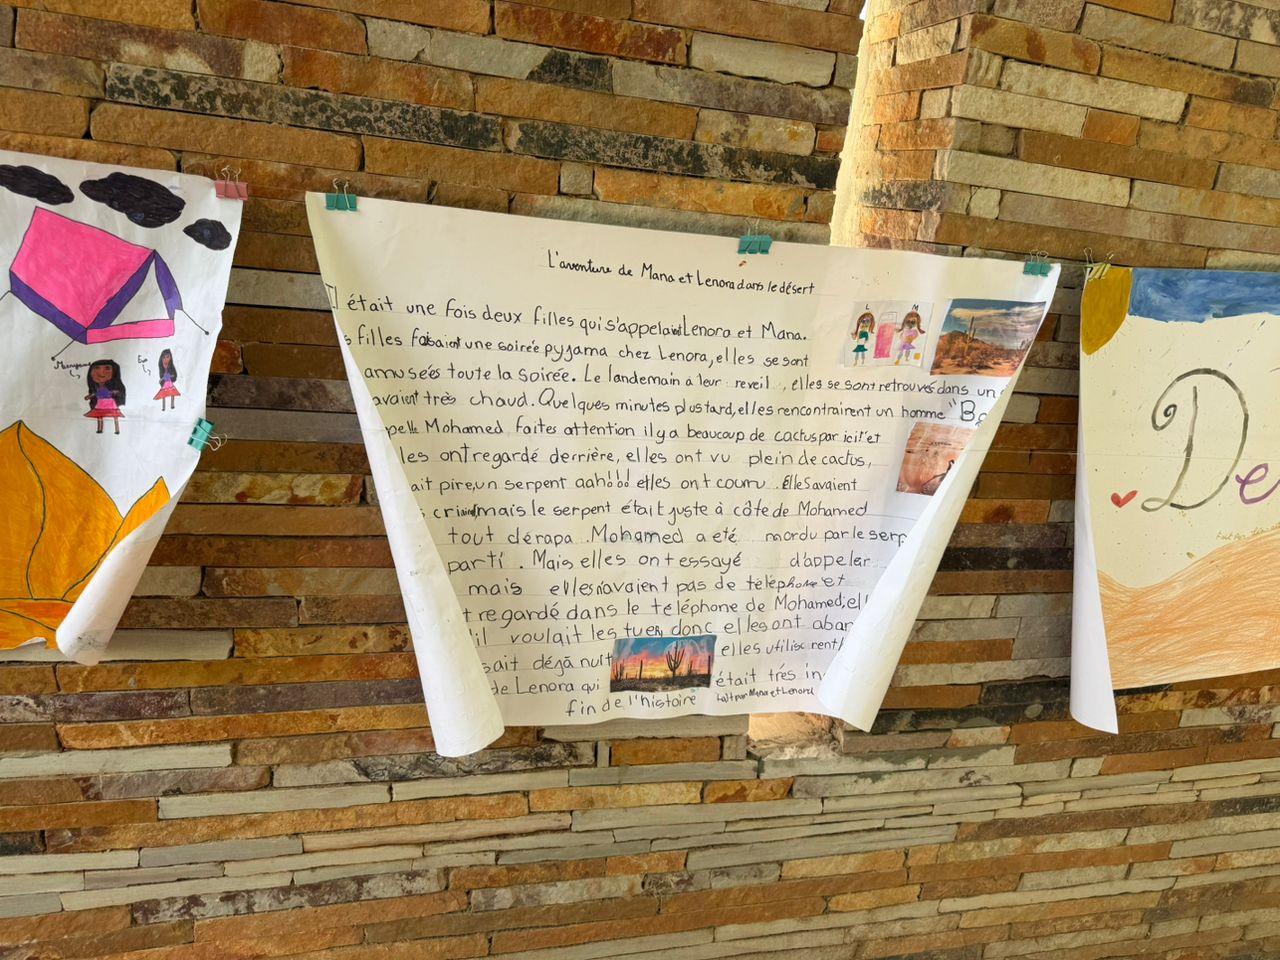 L'aventure de Mana et Lenora dans le désert
Il était une fois deux filles qui s'appelaient Lenora et Mana.
s filles faisaient une soirée pyjama chez Lenora, elles se sont
amusées toute la soirée. Le landemain a leur reveil, elles se sont retrouvés dans un
avaient très chaud. Quelques minutes plus tard, elles rencontrairent un homme "Bo
pelle Mohamed faites attention il y a beaucoup de cactus par ici" et
les ont regardé derrière, elles ont vu plein de cactus,
ait pire, un serpent aah!!! elles ont couru. élles avaient
mais le serpent était juste à côte de Mohamed
tout dérapa. Mohamed a eté mordu par le serp
parti. Mais elles ont essayé d'appeler
mais elles n'avaient pas de téléphone et
t regardé dans le téléphone de Mohamed, el
'il voulait les tuer donc elles ont aban
sait déjà nuit elles utilisèrent
de Lenora qui était trés in
fin de l'histoire
fait par Mana et Lenora
L M
Eva
De